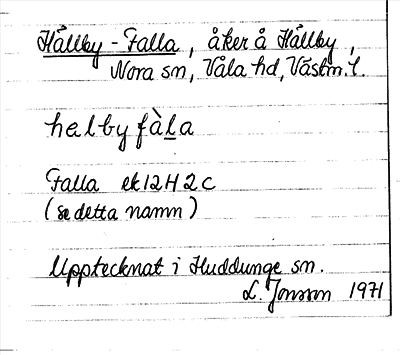 Hållby - Falla, åker å Hållby,
Nora sn, Våla hd, Västm. l.
helbyfàla
Falla ek 12H2c
(se detta namn)
Upptecknat i Huddunge sn.
L. Jonsson 1971